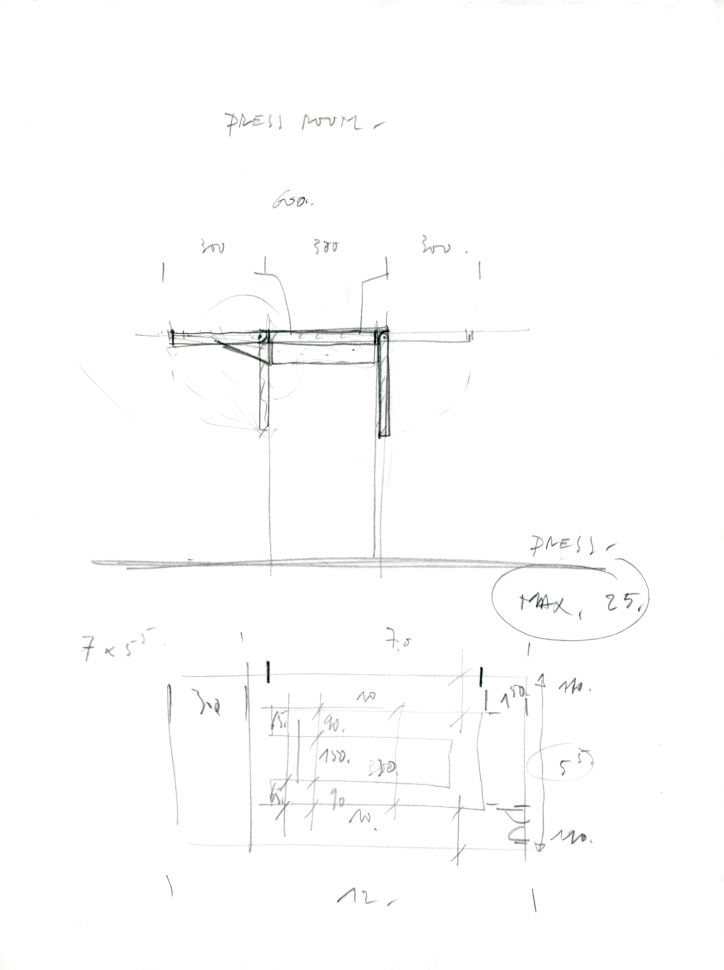 PRESS ROOM -
600.
300 300 300.
PRESS -
MAX. 25.
7 x 5⁵
7.0
300
10
1⁵⁰
110.
65. 90.
150.
330.
5⁵
65. 90
10.
110.
12 -